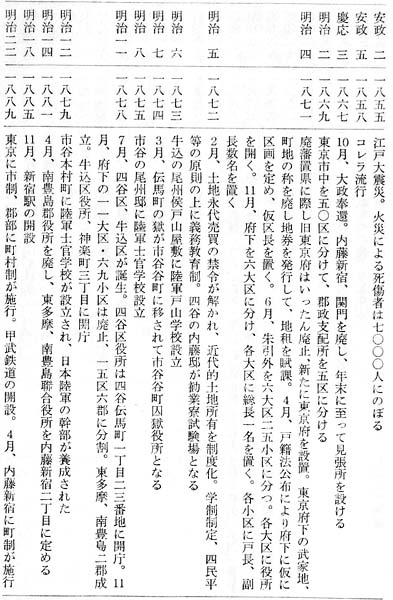 安政 二 一八五五 江戸大震災。火災による死傷者は七〇〇〇人にのぼる
安政 五 一八五八 コレラ流行
慶応 三 一八六七 10月、大政奉還。内藤新宿、関門を廃し、年末に至って見張所を設ける
明治 二 東京市中を五〇区に分けて、郡政支配所を五区に分ける
明治 四 一八七一 廃藩置県に際し旧東京府はいったん廃止、新たに東京府を設置。東京府下の武家地、
町地の称を廃し地券を発行して、地租を賦課。4月、戸籍法公布により府下に仮に
区画を定め、仮区長を置く。6月、朱引外を六大区二五小区に分つ。各大区に役所
を開く。11月、府下を六大区に分け、各大区に総長一名を置く。各小区に戸長、副
長数名を置く
明治 五 一八七二 2月、土地永代売買の禁令が解かれ、近代的土地所有を制度化。学制制定、四民平
等の原則の上に義務教育制。四谷の内藤邸が勧業寮試験場となる
明治 六 一八七三 牛込の尾州侯戸山屋敷に陸軍戸山学校設立
明治 七 一八七四 3月、伝馬町の獄が市谷谷町に移されて市谷谷町囚獄役所となる
明治 八 一八七五 市谷の尾州邸に陸軍士官学校設立
明治 一一 一八七八 7月、四谷区、牛込区が誕生。四谷区役所は四谷伝馬町一丁目二三番地に開庁。11
月、府下の一一大区・六九小区は廃止、一五区六郡に分割。東多摩、南豊島二郡成
立。牛込区役所、神楽町三丁目に開庁
明治 一二 一八七九 市谷本村町に陸軍士官学校が設立され、日本陸軍の幹部が養成された
明治 一四 一八八一 4月、南豊島郡役所を廃し、東多摩、南豊島聯合役所を内藤新宿二丁目に定める
明治 一八 一八八五 11月、新宿駅の開設
明治 二二 一八八九 東京に市制、郡部に町村制が施行。甲武鉄道の開設。4月、内藤新宿に町制が施行